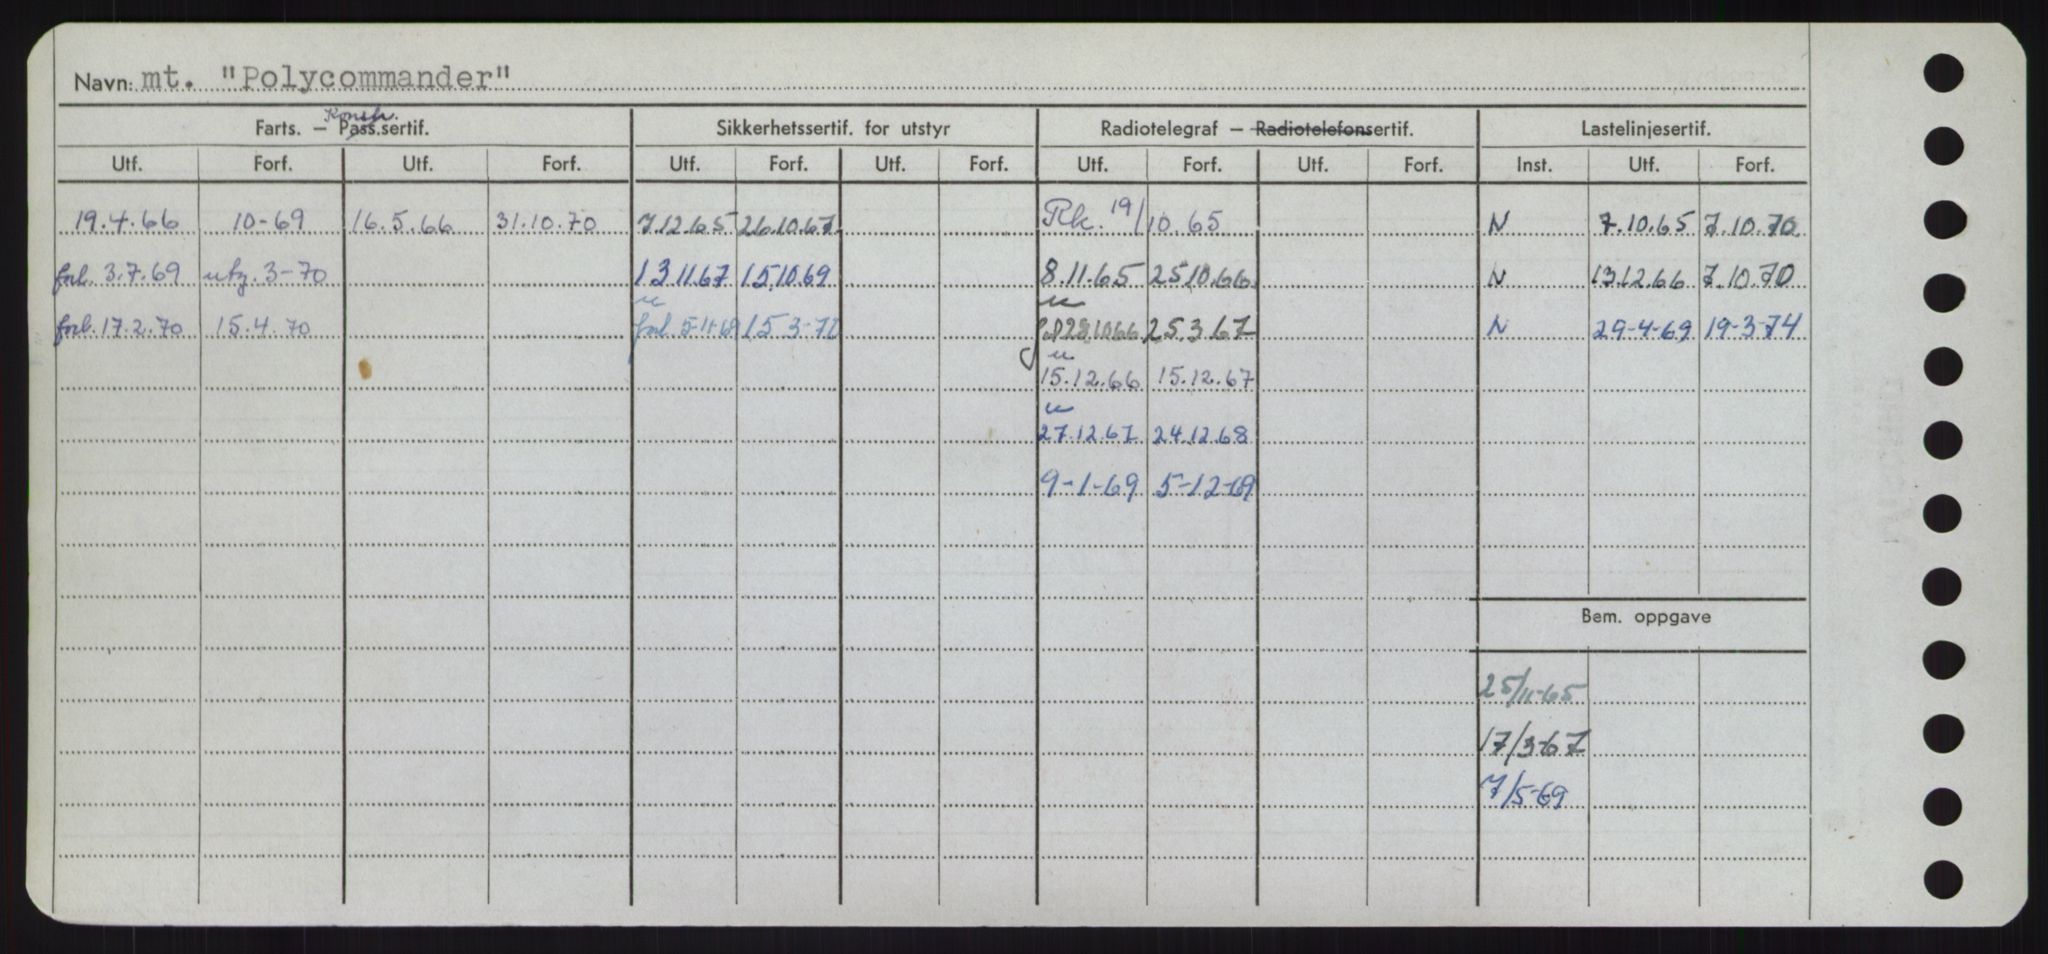 Navn: mt. "Polycommander"
Konstr.
Farts. – Pass.sertif. Sikkerhetssertif. for utstyr Radiotelegraf – Radiotelefonsertif. Lastelinjesertif.
Utf. Forf. Utf. Forf. Utf. Forf. Utf. Forf. Utf. Forf. Utf. Forf. Inst. Utf. Forf.
19.4.66 10-69 16.5.66 31.10.70 7.12.65 26.10.67 Rk. 19/10.65 N 7.10.65 7.10.70
forl. 3.7.69 utg. 3-70 13.11.67 15.10.69 8.11.65 25.10.66 N 13.12.66 7.10.70
u u
forl. 17.2.70 15.4.70 forl. 5-11-69 15 3-72 28.10.66 25.3.67 N 29-4-69 19-3-74
u
15.12.66 15.12.67
u
27.12.67 24.12.68
9-1-69 5-12-69
Bem. oppgave
25/11-65
17/3-67
7/5-69